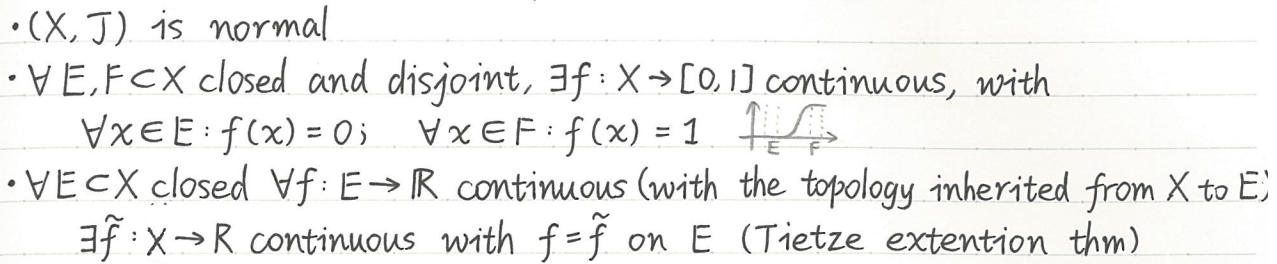 ·(X, J) is normal
·∀E,F⊂X closed and disjoint, ∃f:X→[0,1] continuous, with
∀x∈E:f(x)=0; ∀x∈F:f(x)=1 E F
·∀E⊂X closed ∀f:E→ℝ continuous (with the topology inherited from X to E)
∃f̃:X→R continuous with f=f̃ on E (Tietze extention thm)